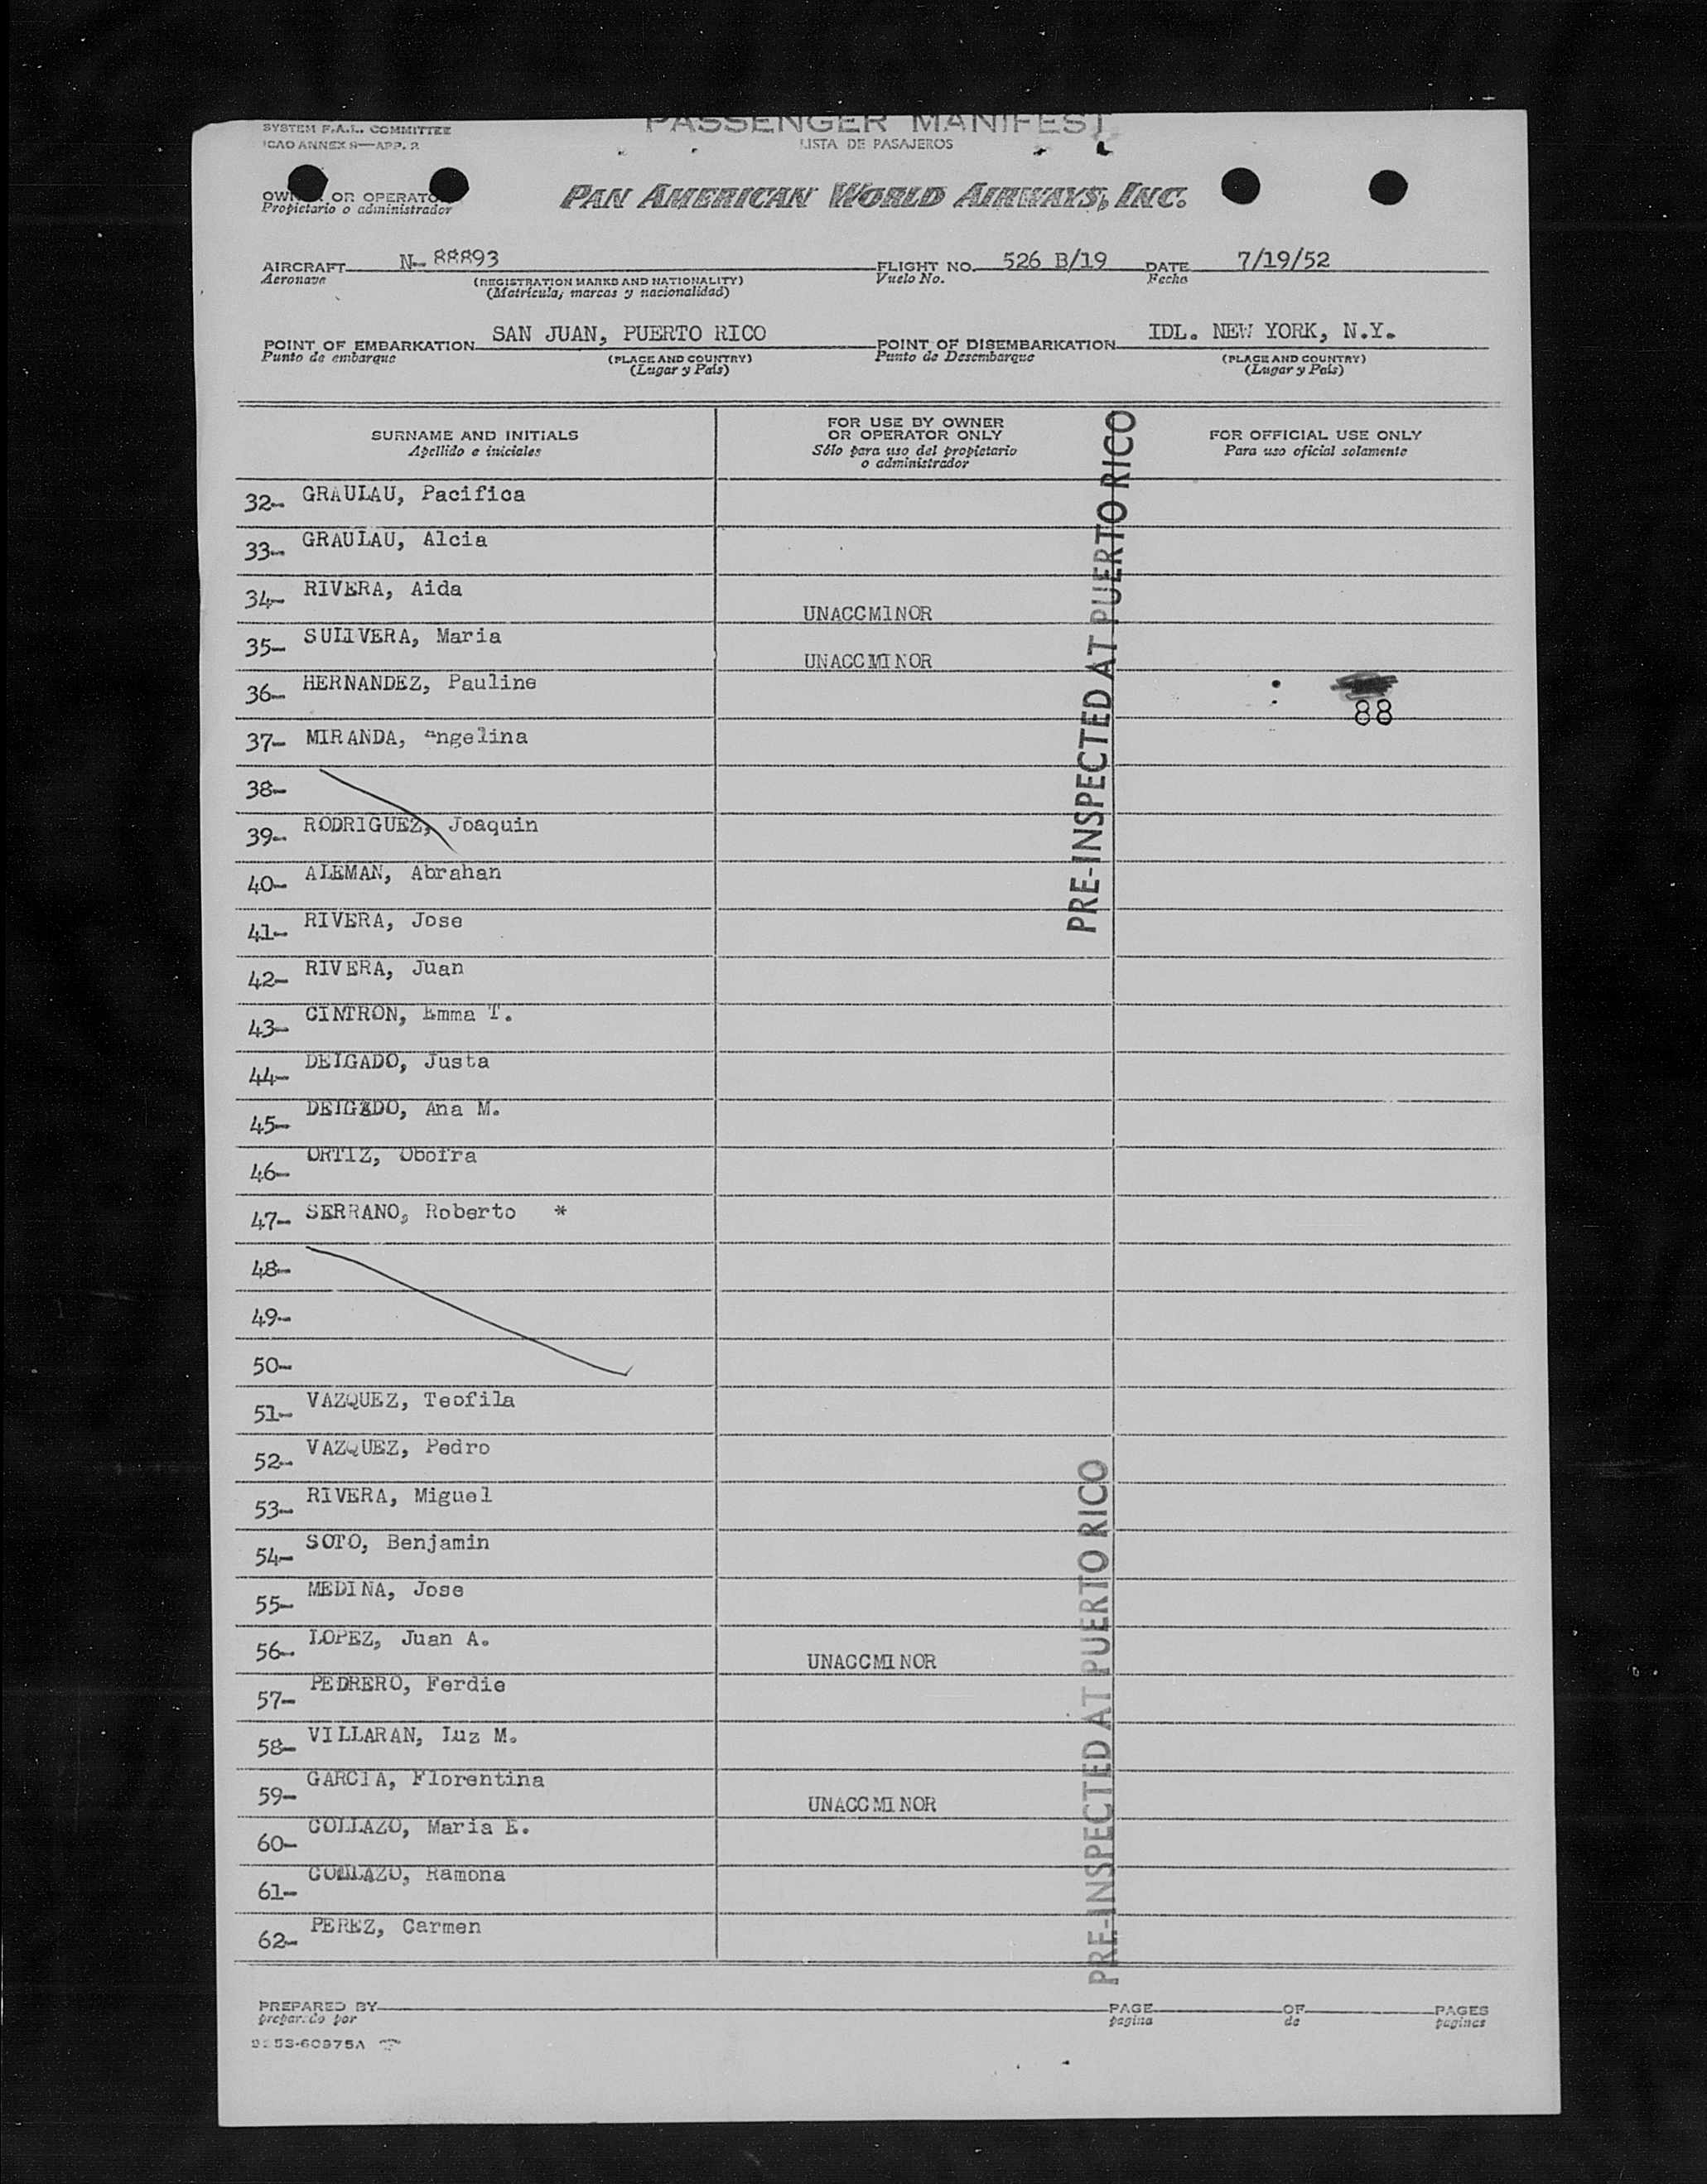 SYSTEM F.A.L. COMMITTEE
ICAO ANNEX 9—APP. 2
PASSENGER MANIFEST
LISTA DE PASAJEROS
OWNER OR OPERATOR
Propietario o administrador
PAN AMERICAN WORLD AIRWAYS, INC.
AIRCRAFT N- 88893 FLIGHT NO. 526 B/19 DATE 7/19/52
Aeronave (REGISTRATION MARKS AND NATIONALITY) Vuelo No. Fecha
(Matrícula, marcas y nacionalidad)
POINT OF EMBARKATION SAN JUAN, PUERTO RICO POINT OF DISEMBARKATION IDL. NEW YORK, N.Y.
Punto de embarque (PLACE AND COUNTRY) Punto de Desembarque (PLACE AND COUNTRY)
(Lugar y País) (Lugar y País)
SURNAME AND INITIALS
Apellido e iniciales
FOR USE BY OWNER
OR OPERATOR ONLY
Sólo para uso del propietario
o administrador
FOR OFFICIAL USE ONLY
Para uso oficial solamente
32- GRAULAU, Pacifica
33- GRAULAU, Alcia
34- RIVERA, Aida UNACCMINOR
35- SULIVERA, Maria UNACCMINOR
36- HERNANDEZ, Pauline 88
37- MIRANDA, Angelina
38-
39- RODRIGUEZ, Joaquin
40- ALEMAN, Abrahan
41- RIVERA, Jose
42- RIVERA, Juan
43- CINTRON, Emma T.
44- DELGADO, Justa
45- DELGADO, Ana M.
46- ORTIZ,
47- SERRANO, Roberto *
48-
49-
50-
51- VAZQUEZ, Teofila
52- VAZQUEZ, Pedro
53- RIVERA, Miguel
54- SOTO, Benjamin
55- MEDINA, Jose
56- LOPEZ, Juan A. UNACCMINOR
57- PEDRERO, Ferdie
58- VILLARAN, Luz M.
59- GARCIA, Florentina UNACCMINOR
60- COLLAZO, Maria E.
61- COLLAZO, Ramona
62- PEREZ, Carmen
PRE-INSPECTED AT PUERTO RICO
PRE-INSPECTED AT PUERTO RICO
PREPARED BY PAGE OF PAGES
preparado por pagina de paginas